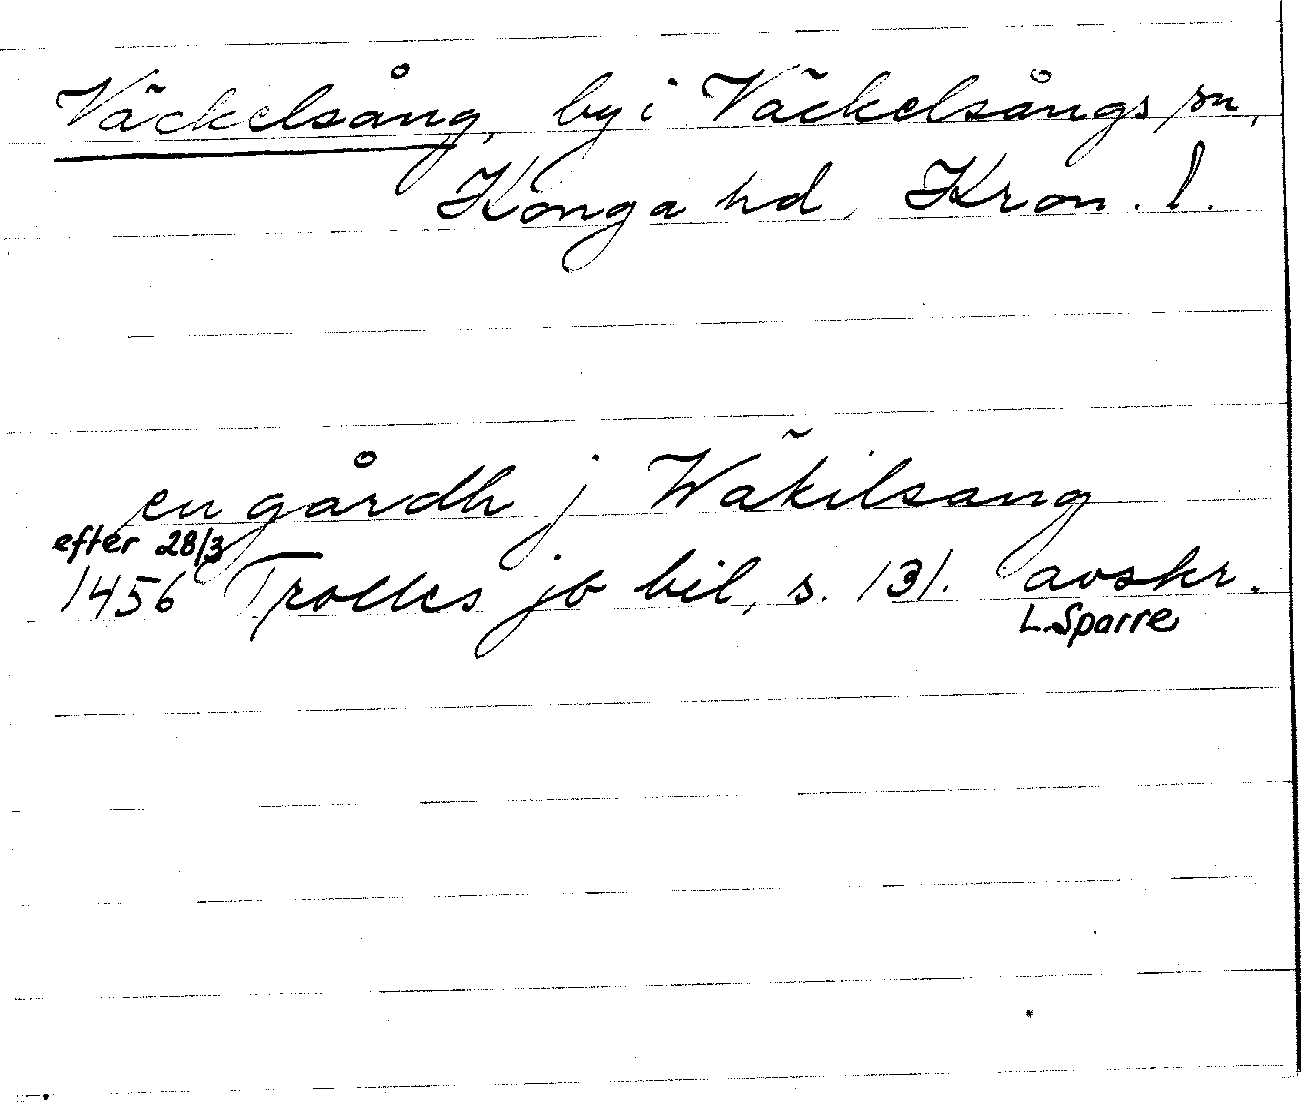 Väckelsång, by i Väckelsångs sn,
Konga hd, Kron. l.
en gårdh j Wäkilsang
efter 28/3
1456 Trolles jb bil, s. 131. avskr.
L. Sparre